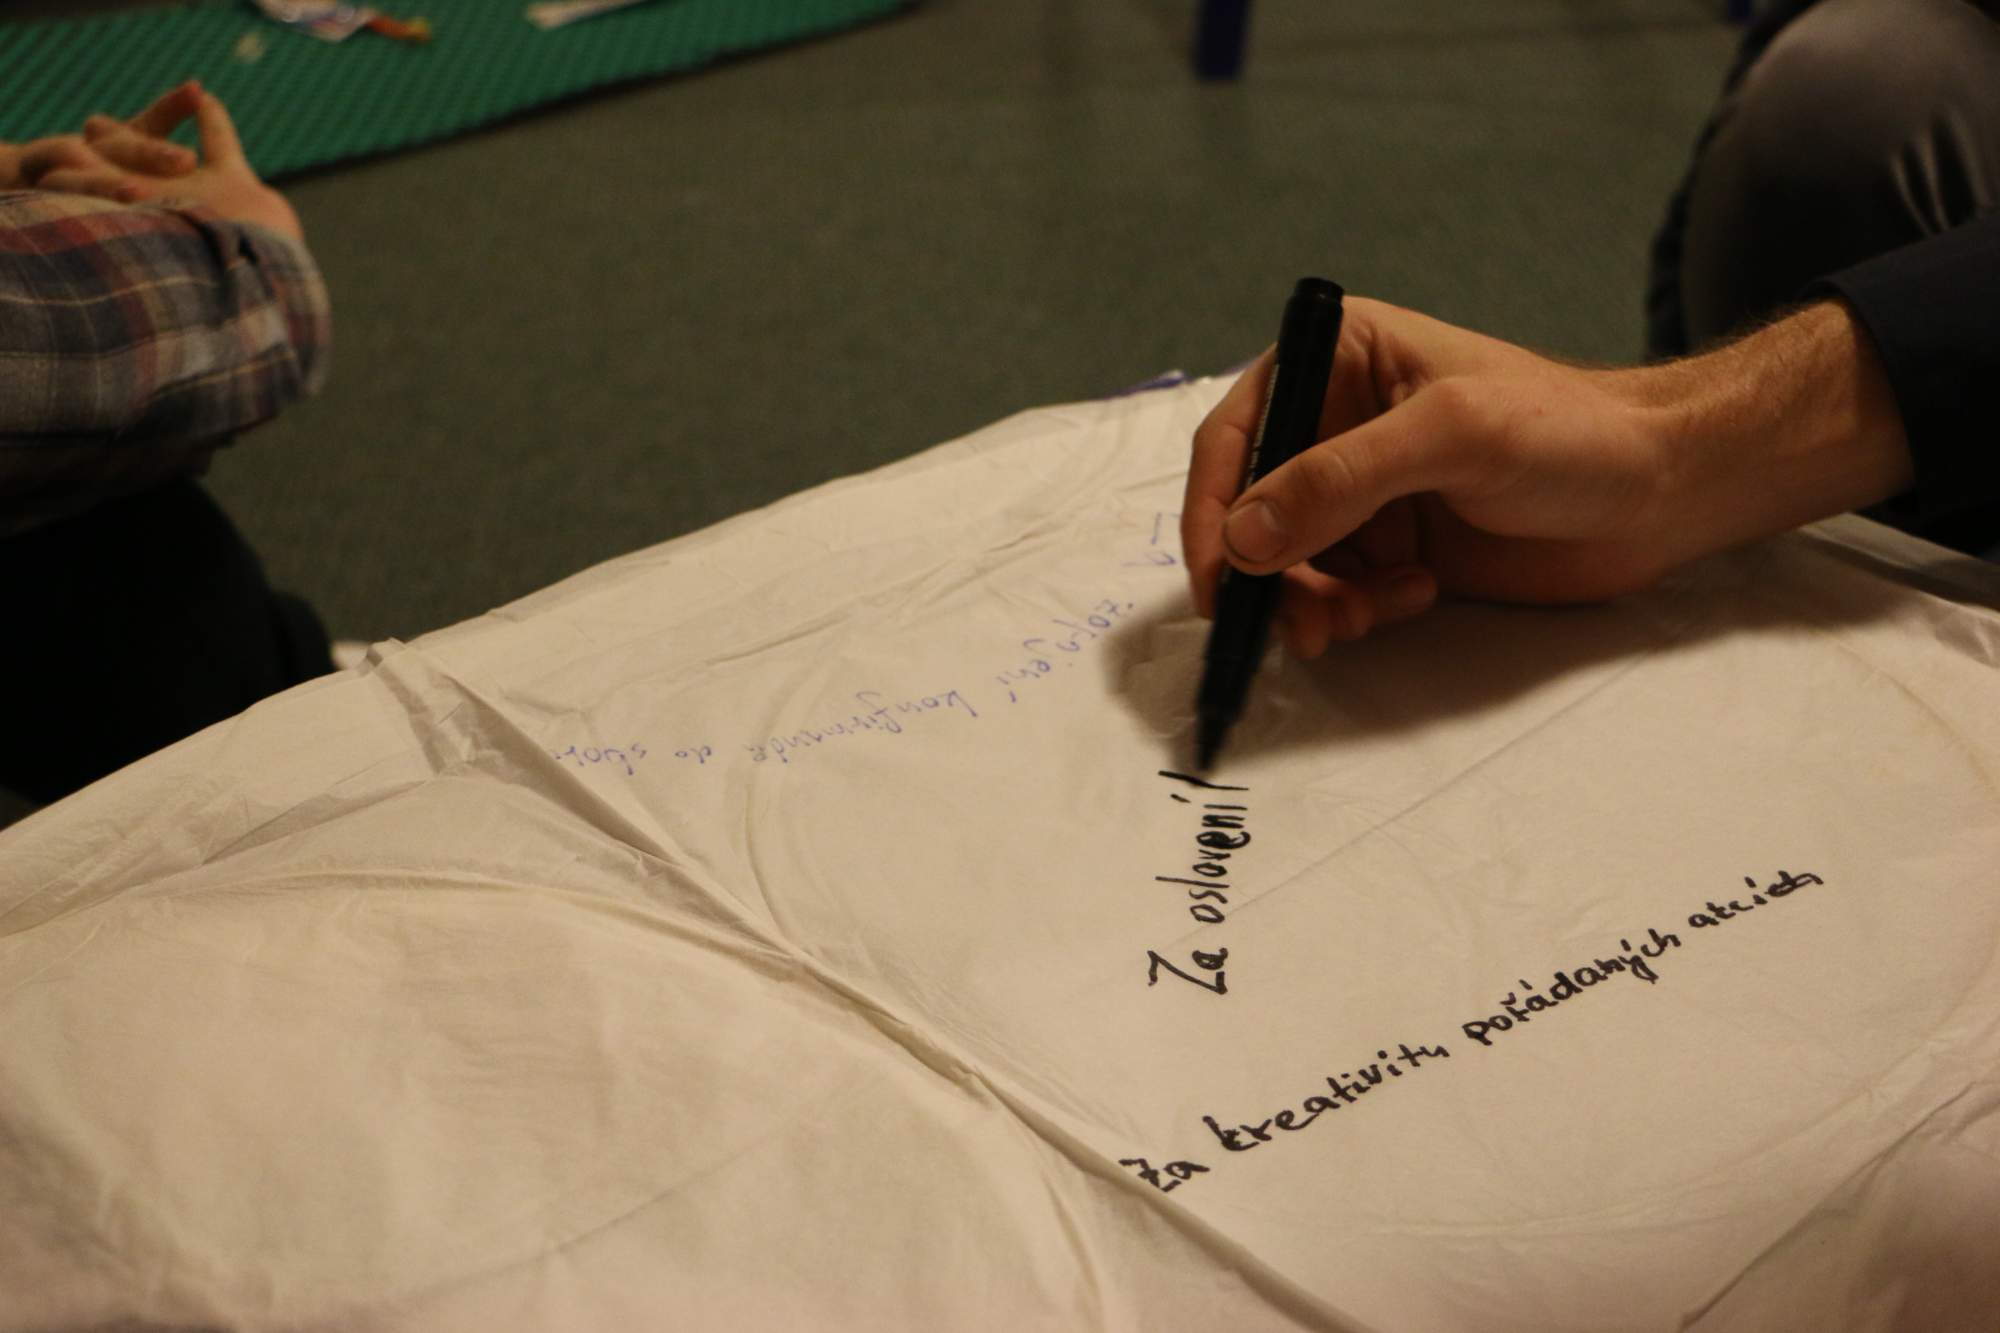 Za zapojení konfirmandů do sboru
Za oslovení
Za kreativitu pořádaných akcích